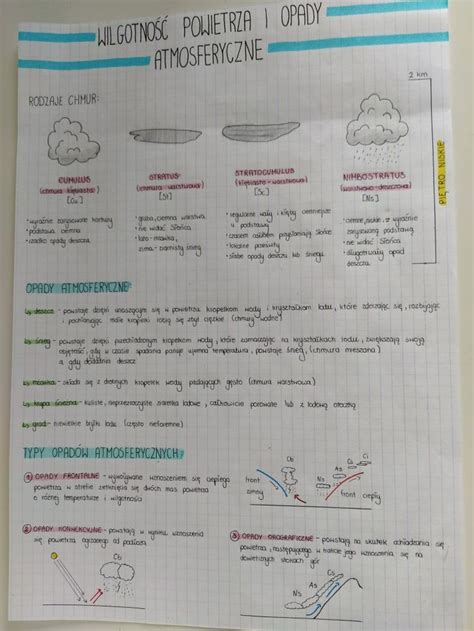 WILGOTNOŚĆ POWIETRZA I OPADY
ATMOSFERYCZNE
2 km
RODZAJE CHMUR:
PIĘTRO NISKIE
CUMULUS
(chmura kłębiasta)
[Cu]
STRATUS
(chmura warstwowa)
[St]
STRATOCUMULUS
(kłębiasto - warstwowa)
[Sc]
NIMBOSTRATUS
(warstwowo - deszczowa)
[Ns]
• wyraźnie zarysowane kontury
• podstawa ciemna
• rzadko opady deszczu
• gruba, ciemna warstwa
• nie widać Słońca
• lato - mżawka,
• zima - ziarnisty śnieg
• regularne wały i kłęby ciemniejsze
u podstawy
• czasem osobom przysłaniają Słońce
• lokalne prześwity
• słabe opady deszczu lub śniegu
• ciemne, niskie, z wyraźnie
zarysowaną podstawą
• nie widać Słońca
• długotrwały opad
deszczu
OPADY ATMOSFERYCZNE:
↳ deszcz - powstaje dzięki unoszącym się w powietrzu kropelkom wody i kryształkom lodu, które zderzając się, rozbijając
i pochłaniając małe kropelki robią się zbyt ciężkie (chmury wodne)
↳ śnieg - powstaje dzięki przechłodzonym kropelkom wody, które zamarzając na kryształkach lodu, zwiększają swoją
objętość, gdy w czasie spadania panuje ujemna temperatura, powstaje śnieg, (chmura mieszana)
a gdy dodatnia deszcz
↳ mżawka - składa się z drobnych kropelek wody padających gęsto (chmura warstwowa)
↳ krupa śnieżna - kuliste, nieprzezroczyste ziarenka lodowe, całkowicie porowate lub z lodową otoczką
↳ grad - niewielkie bryłki lodu (często nieforemne)
TYPY OPADÓW ATMOSFERYCZNYCH:
1) OPADY FRONTALNE - wywoływane wznoszeniem się ciepłego
powietrza w strefie zetknięcia się dwóch mas powietrza
o różnej temperaturze i wilgotności
Cb
front
zimny
Ns
As
Cs
Ci
front ciepły
2) OPADY KONWEKCYJNE - powstają w wyniku wznoszenia
się powietrza ogrzanego od podłoża
Cb
3) OPADY OROGRAFICZNE - powstają na skutek ochładzania się
powietrza, następującego w trakcie jego wznoszenia się na
dowietrznych stokach gór
Ns
As
Cs